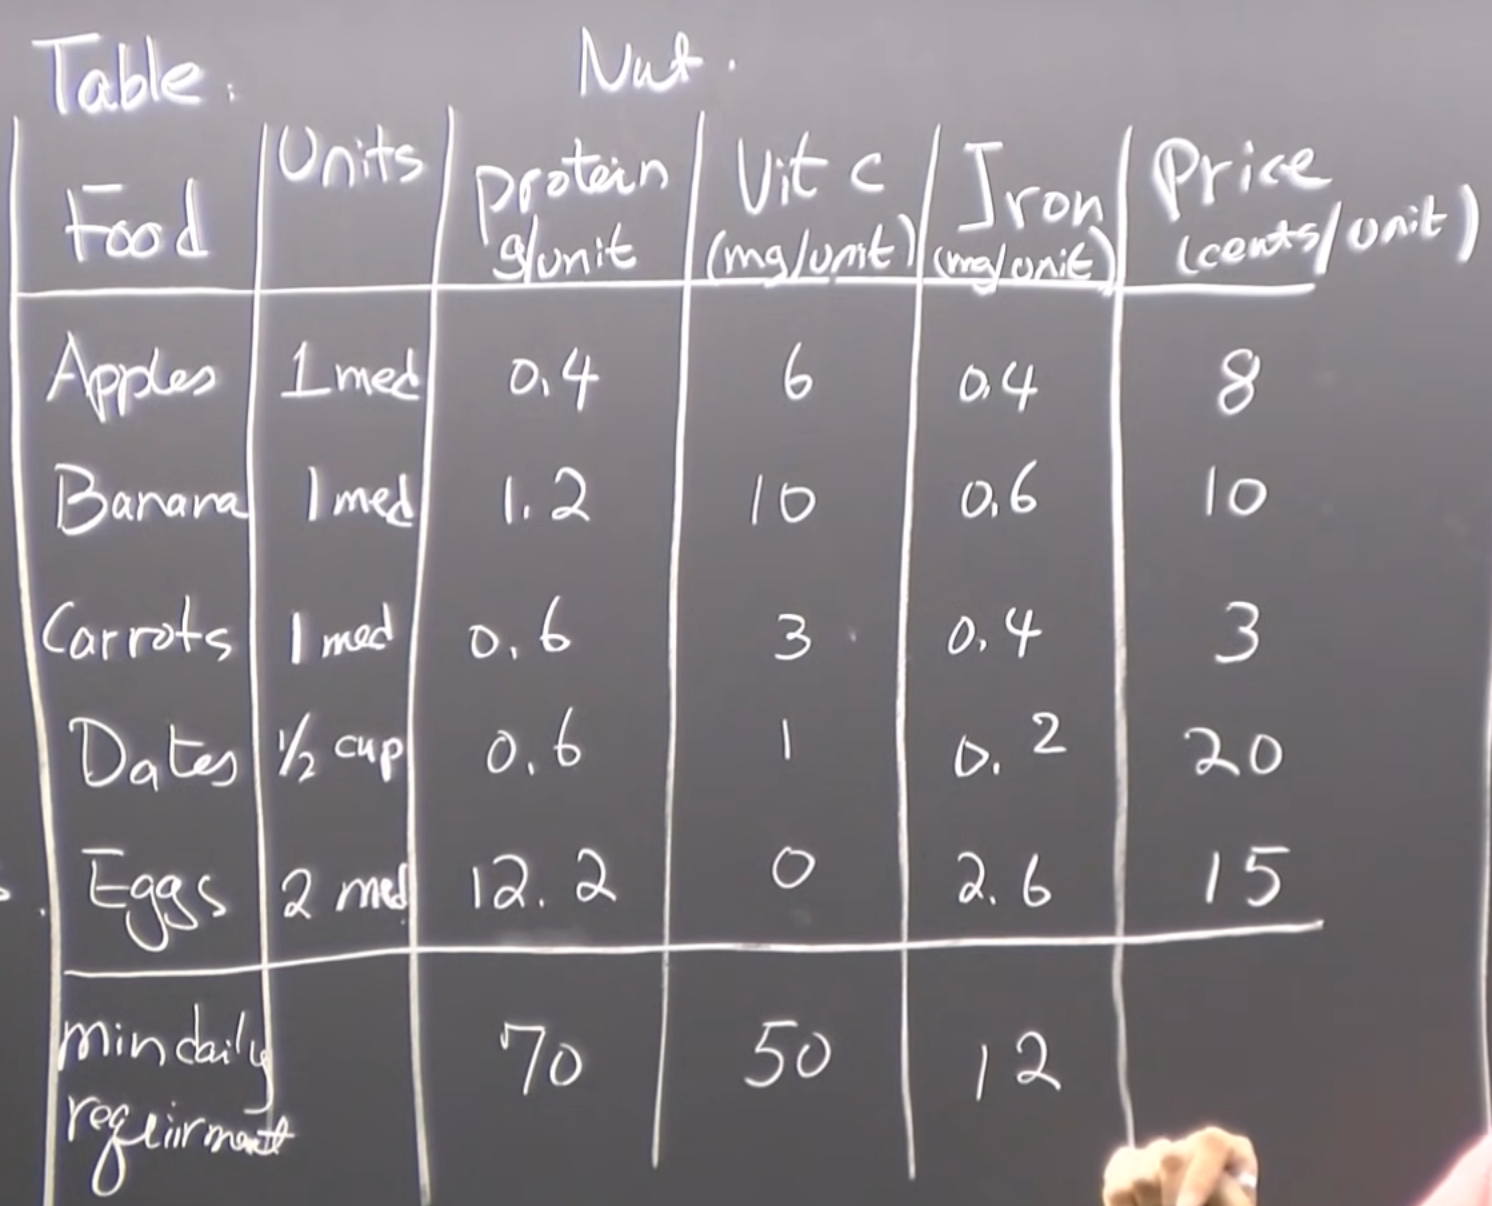 Table. Nut.
Food Units Protein g/unit Vit c (mg/unit) Iron (mg/unit) Price (cents/unit)
Apples 1 med 0.4 6 0.4 8
Banana 1 med 1.2 10 0.6 10
Carrots 1 med 0.6 3 0.4 3
Dates ½ cup 0.6 1 0.2 20
Eggs 2 med 12.2 0 2.6 15
min daily 70 50 12
requirment